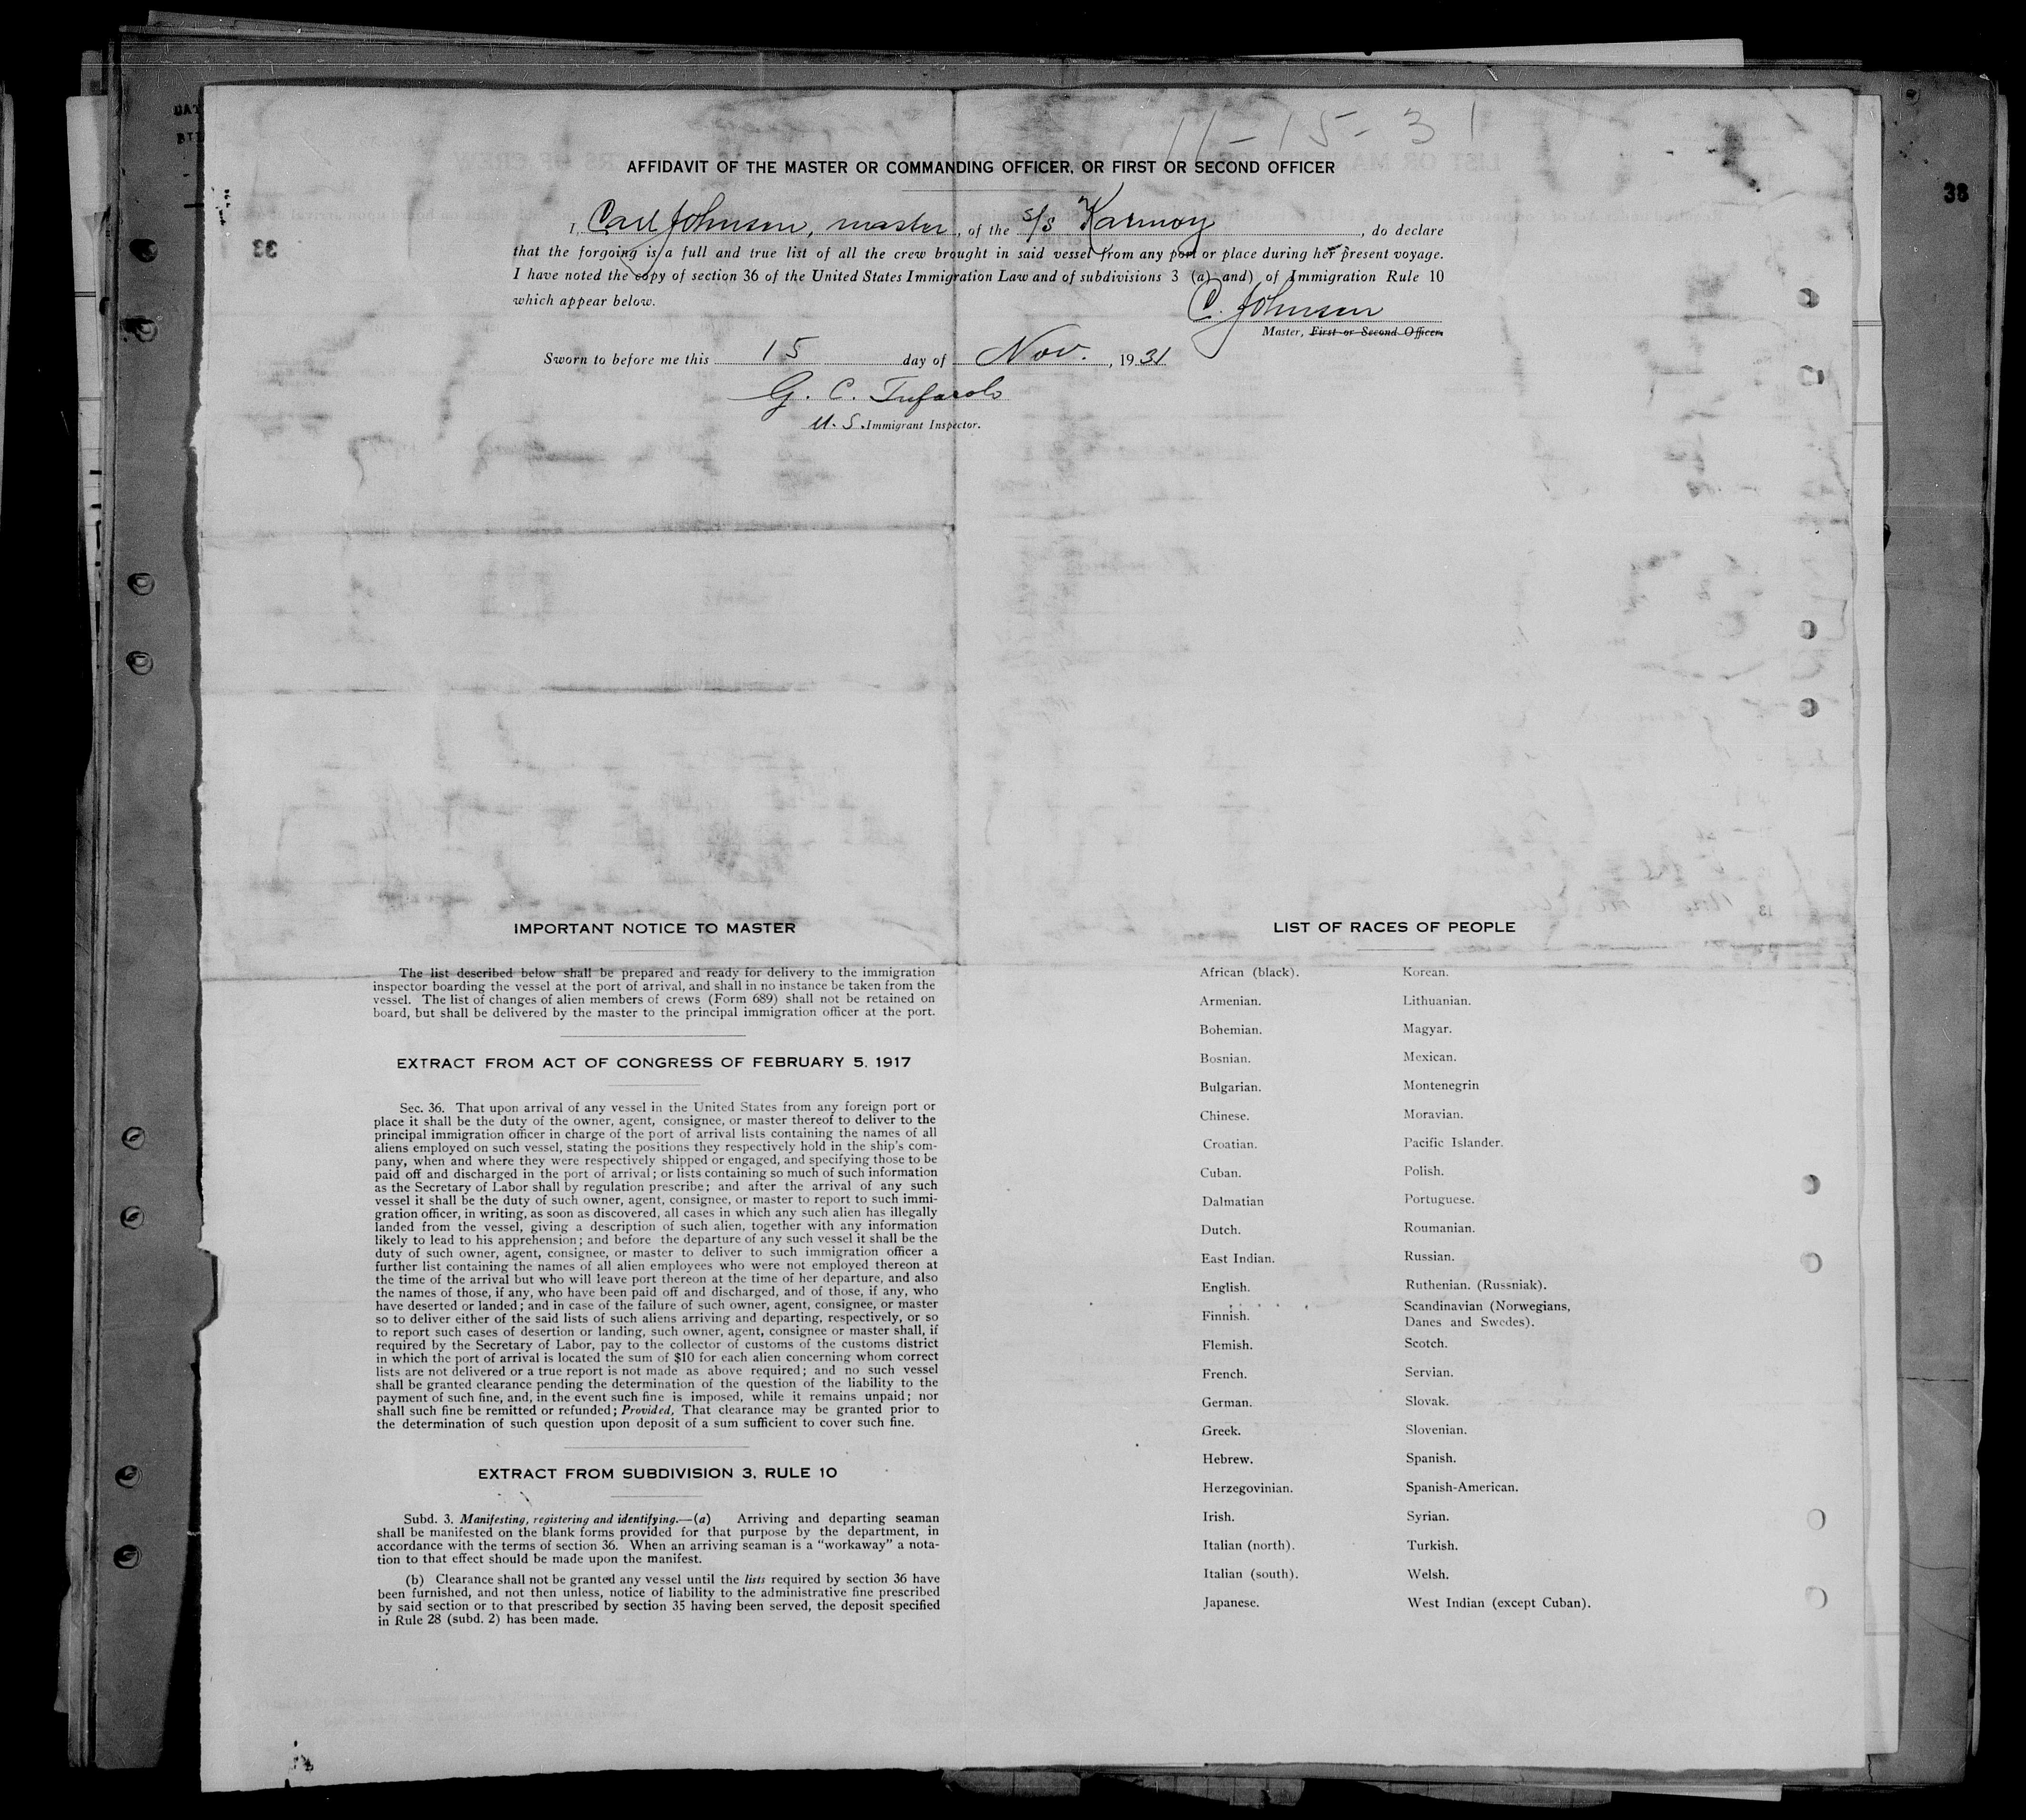 11-15-31
AFFIDAVIT OF THE MASTER OR COMMANDING OFFICER, OR FIRST OR SECOND OFFICER
38
33
I, Carl Johnson, master, of the s/s Karmoy, do declare
that the forgoing is a full and true list of all the crew brought in said vessel from any port or place during her present voyage.
I have noted the copy of section 36 of the United States Immigration Law and of subdivisions 3 (a) and) of Immigration Rule 10
which appear below.
C. Johnson
Master, First or Second Officer.
Sworn to before me this 15 day of Nov., 1931
G. C.
U. S. Immigrant Inspector.
IMPORTANT NOTICE TO MASTER
The list described below shall be prepared and ready for delivery to the immigration
inspector boarding the vessel at the port of arrival, and shall in no instance be taken from the
vessel. The list of changes of alien members of crews (Form 689) shall not be retained on
board, but shall be delivered by the master to the principal immigration officer at the port.
EXTRACT FROM ACT OF CONGRESS OF FEBRUARY 5, 1917
Sec. 36. That upon arrival of any vessel in the United States from any foreign port or
place it shall be the duty of the owner, agent, consignee, or master thereof to deliver to the
principal immigration officer in charge of the port of arrival lists containing the names of all
aliens employed on such vessel, stating the positions they respectively hold in the ship's com-
pany, when and where they were respectively shipped or engaged, and specifying those to be
paid off and discharged in the port of arrival; or lists containing so much of such information
as the Secretary of Labor shall by regulation prescribe; and after the arrival of any such
vessel it shall be the duty of such owner, agent, consignee, or master to report to such immi-
gration officer, in writing, as soon as discovered, all cases in which any such alien has illegally
landed from the vessel, giving a description of such alien, together with any information
likely to lead to his apprehension; and before the departure of any such vessel it shall be the
duty of such owner, agent, consignee, or master to deliver to such immigration officer a
further list containing the names of all alien employees who were not employed thereon at
the time of the arrival but who will leave port thereon at the time of her departure, and also
the names of those, if any, who have been paid off and discharged, and of those, if any, who
have deserted or landed; and in case of the failure of such owner, agent, consignee, or master
so to deliver either of the said lists of such aliens arriving and departing, respectively, or so
to report such cases of desertion or landing, such owner, agent, consignee or master shall, if
required by the Secretary of Labor, pay to the collector of customs of the customs district
in which the port of arrival is located the sum of $10 for each alien concerning whom correct
lists are not delivered or a true report is not made as above required; and no such vessel
shall be granted clearance pending the determination of the question of the liability to the
payment of such fine, and, in the event such fine is imposed, while it remains unpaid; nor
shall such fine be remitted or refunded; Provided, That clearance may be granted prior to
the determination of such question upon deposit of a sum sufficient to cover such fine.
EXTRACT FROM SUBDIVISION 3, RULE 10
Subd. 3. Manifesting, registering and identifying.—(a) Arriving and departing seaman
shall be manifested on the blank forms provided for that purpose by the department, in
accordance with the terms of section 36. When an arriving seaman is a "workaway" a nota-
tion to that effect should be made upon the manifest.
(b) Clearance shall not be granted any vessel until the lists required by section 36 have
been furnished, and not then unless, notice of liability to the administrative fine prescribed
by said section or to that prescribed by section 35 having been served, the deposit specified
in Rule 28 (subd. 2) has been made.
LIST OF RACES OF PEOPLE
African (black).
Armenian.
Bohemian.
Bosnian.
Bulgarian.
Chinese.
Croatian.
Cuban.
Dalmatian
Dutch.
East Indian.
English.
Finnish.
Flemish.
French.
German.
Greek.
Hebrew.
Herzegovinian.
Irish.
Italian (north).
Italian (south).
Japanese.
Korean.
Lithuanian.
Magyar.
Mexican.
Montenegrin
Moravian.
Pacific Islander.
Polish.
Portuguese.
Roumanian.
Russian.
Ruthenian. (Russniak).
Scandinavian (Norwegians,
Danes and Swedes).
Scotch.
Servian.
Slovak.
Slovenian.
Spanish.
Spanish-American.
Syrian.
Turkish.
Welsh.
West Indian (except Cuban).